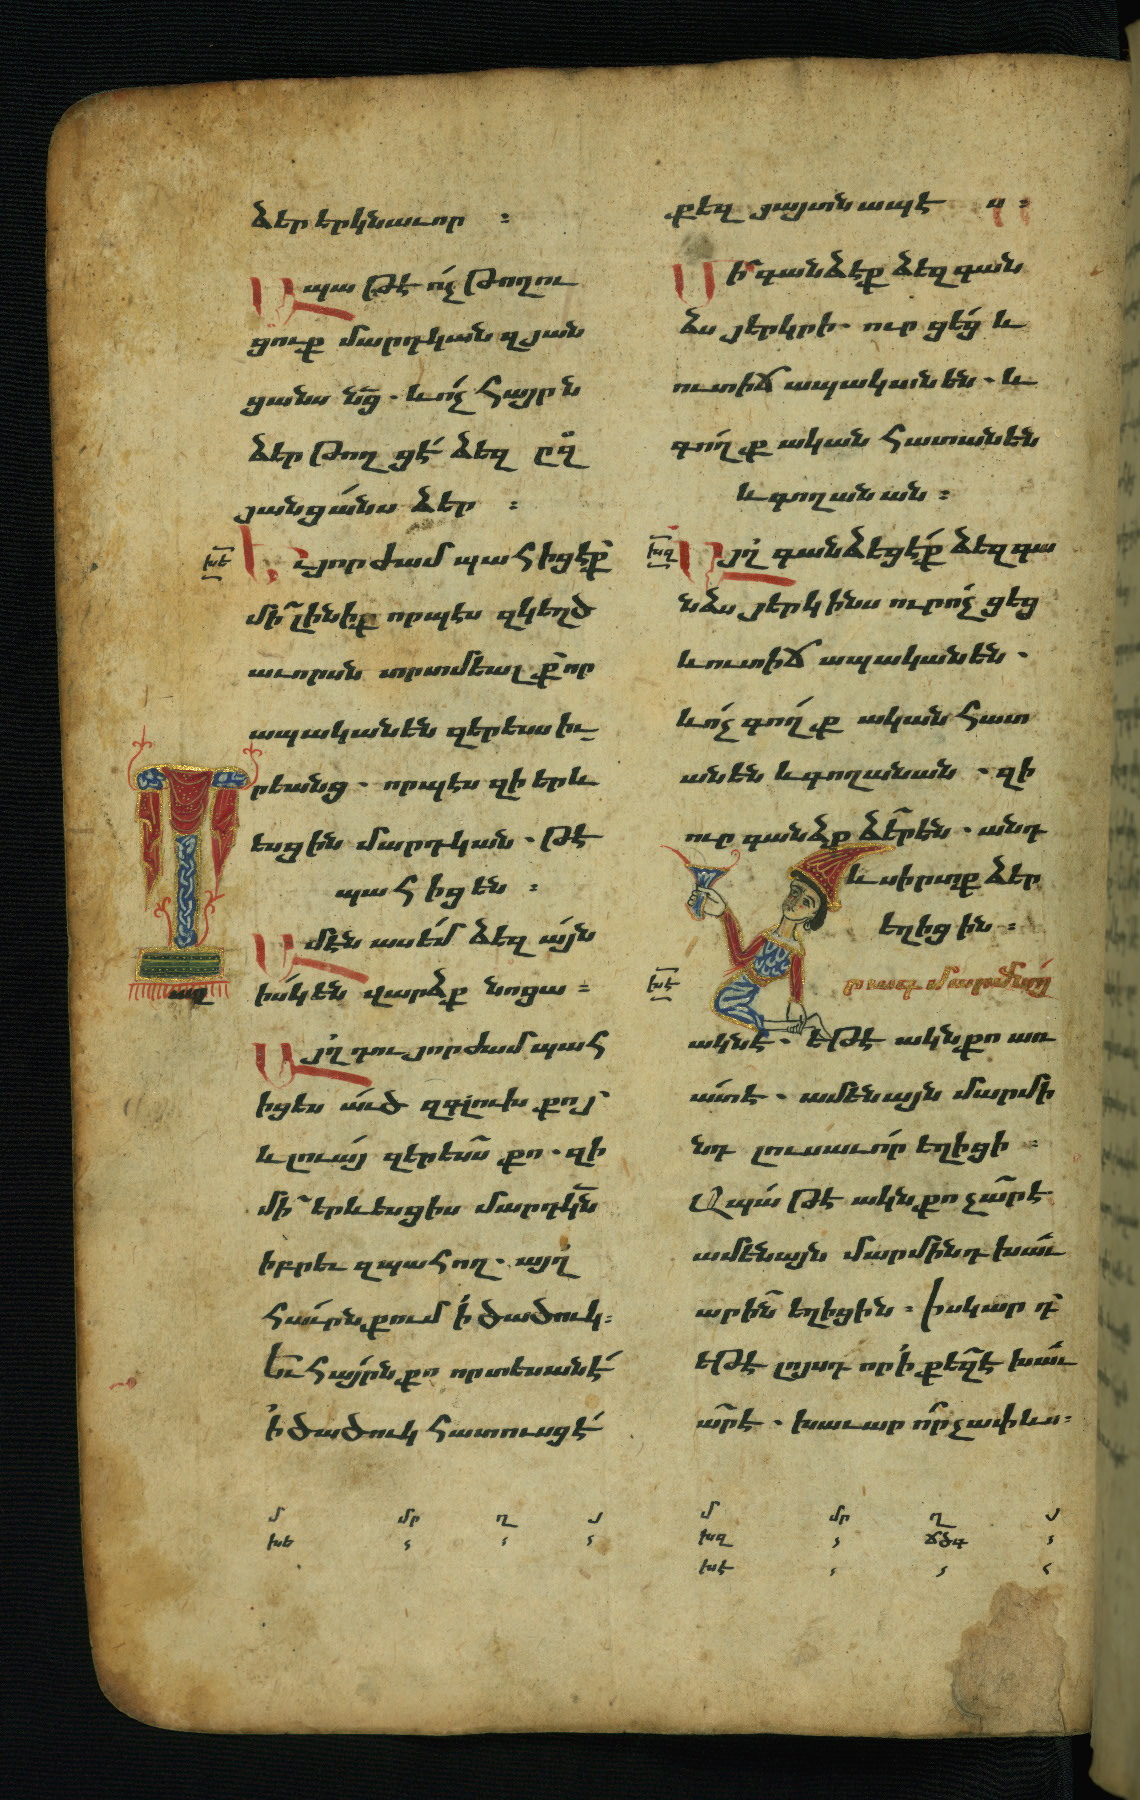 ձեր երկնաւոր ։
Ապա թէ ոչ թողու
ցուք մարդկան զյան
ցանս նց . և ոչ հայրն
ձեր թողցէ ձեզ ըզ
յանցանս ձեր ։
խե
Եւ յորժամ պահիցէք
մի լինիք որպէս զկեղծ
աւորսն տրտմեալք որ
ապականեն զերեսս իւ
րեանց . որպէս զի երև
եսցին մարդկան . թէ
պահիցեն ։
Ամէն ասեմ ձեզ այն
իսկ են վարձք նոցա ։
Այղ դու յորժամ պահ
իցես աւծ զգլուխ քոյ
և լուայ զերեսս քո . զի
մի երևեսցիս մարդկն
իբրեւ զպահող . այղ
հաւրն քում ի ծածուկ ։
Եւ հայրն քո որ տեսանէ
ի ծածուկ հատուսցէ
քեզ յայտնապէս ։
Մի գանձէք ձեզ գան
ձս յերկրի . ուր ցեց և
ուտիճ ապականեն . և
գողք ական հատանեն
և գողանան ։
խզ
Այղ գանձեցէք ձեզ գա
նձս յերկինս ուր ոչ ցեց
և ուտիճ ապականեն .
և ոչ գողք ական հատ
անեն և գողանան . զի
ուր գանձք ձեր են . անդ
և սիրտք ձեր
եղիցին ։
խէ
րագ մարմնոյ
ակնէ . եթէ ակն քո առ
ատ է . ամենայն մարմի
նդ լուսաւոր եղիցի ։
Ապա թէ ակն քո չար է
ամենայն մարմինդ խաւ
արին եղիցին ։ իսկ արդ
եթէ լոյսդ որ ի քեզ է խաւ
ար է . խաւար որչափ ևս ։
մ մր ղ յ
խե
մ մր ղ յ
խզ ճծգ
խէ